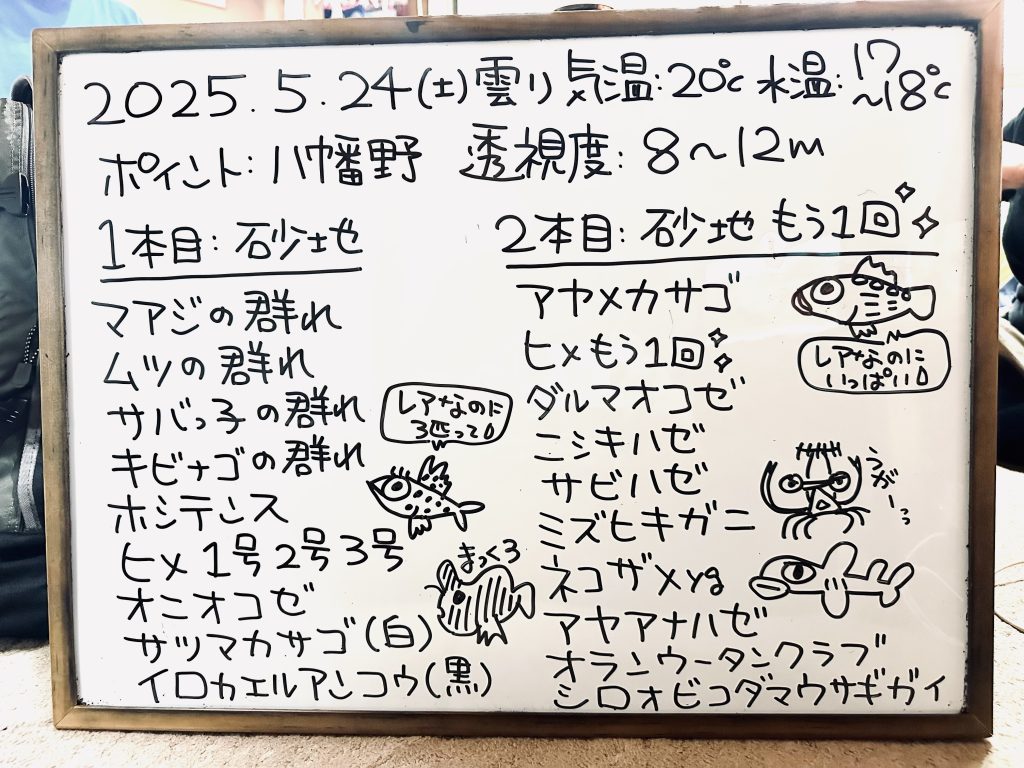 2025.5.24(土)雲り 気温:20℃ 水温:17～18℃
ポイント:八幡野 透視度:8～12m
1本目:砂地
マアジの群れ
ムツの群れ
サバっ子の群れ
キビナゴの群れ
ホシテンス
ヒメ1号2号3号
オニオコゼ
サツマカサゴ(白)
イロカエルアンコウ(黒)
レアなのに
3匹って
まっくろ
2本目:砂地もう1回
アヤメカサゴ
ヒメもう1回
ダルマオコゼ
ニシキハゼ
サビハゼ
ミズヒキガニ
ネコザメyg
アヤアナハゼ
オランウータンクラブ
シロオビコダマウサギガイ
レアなのに
いっぱい
うがーっ